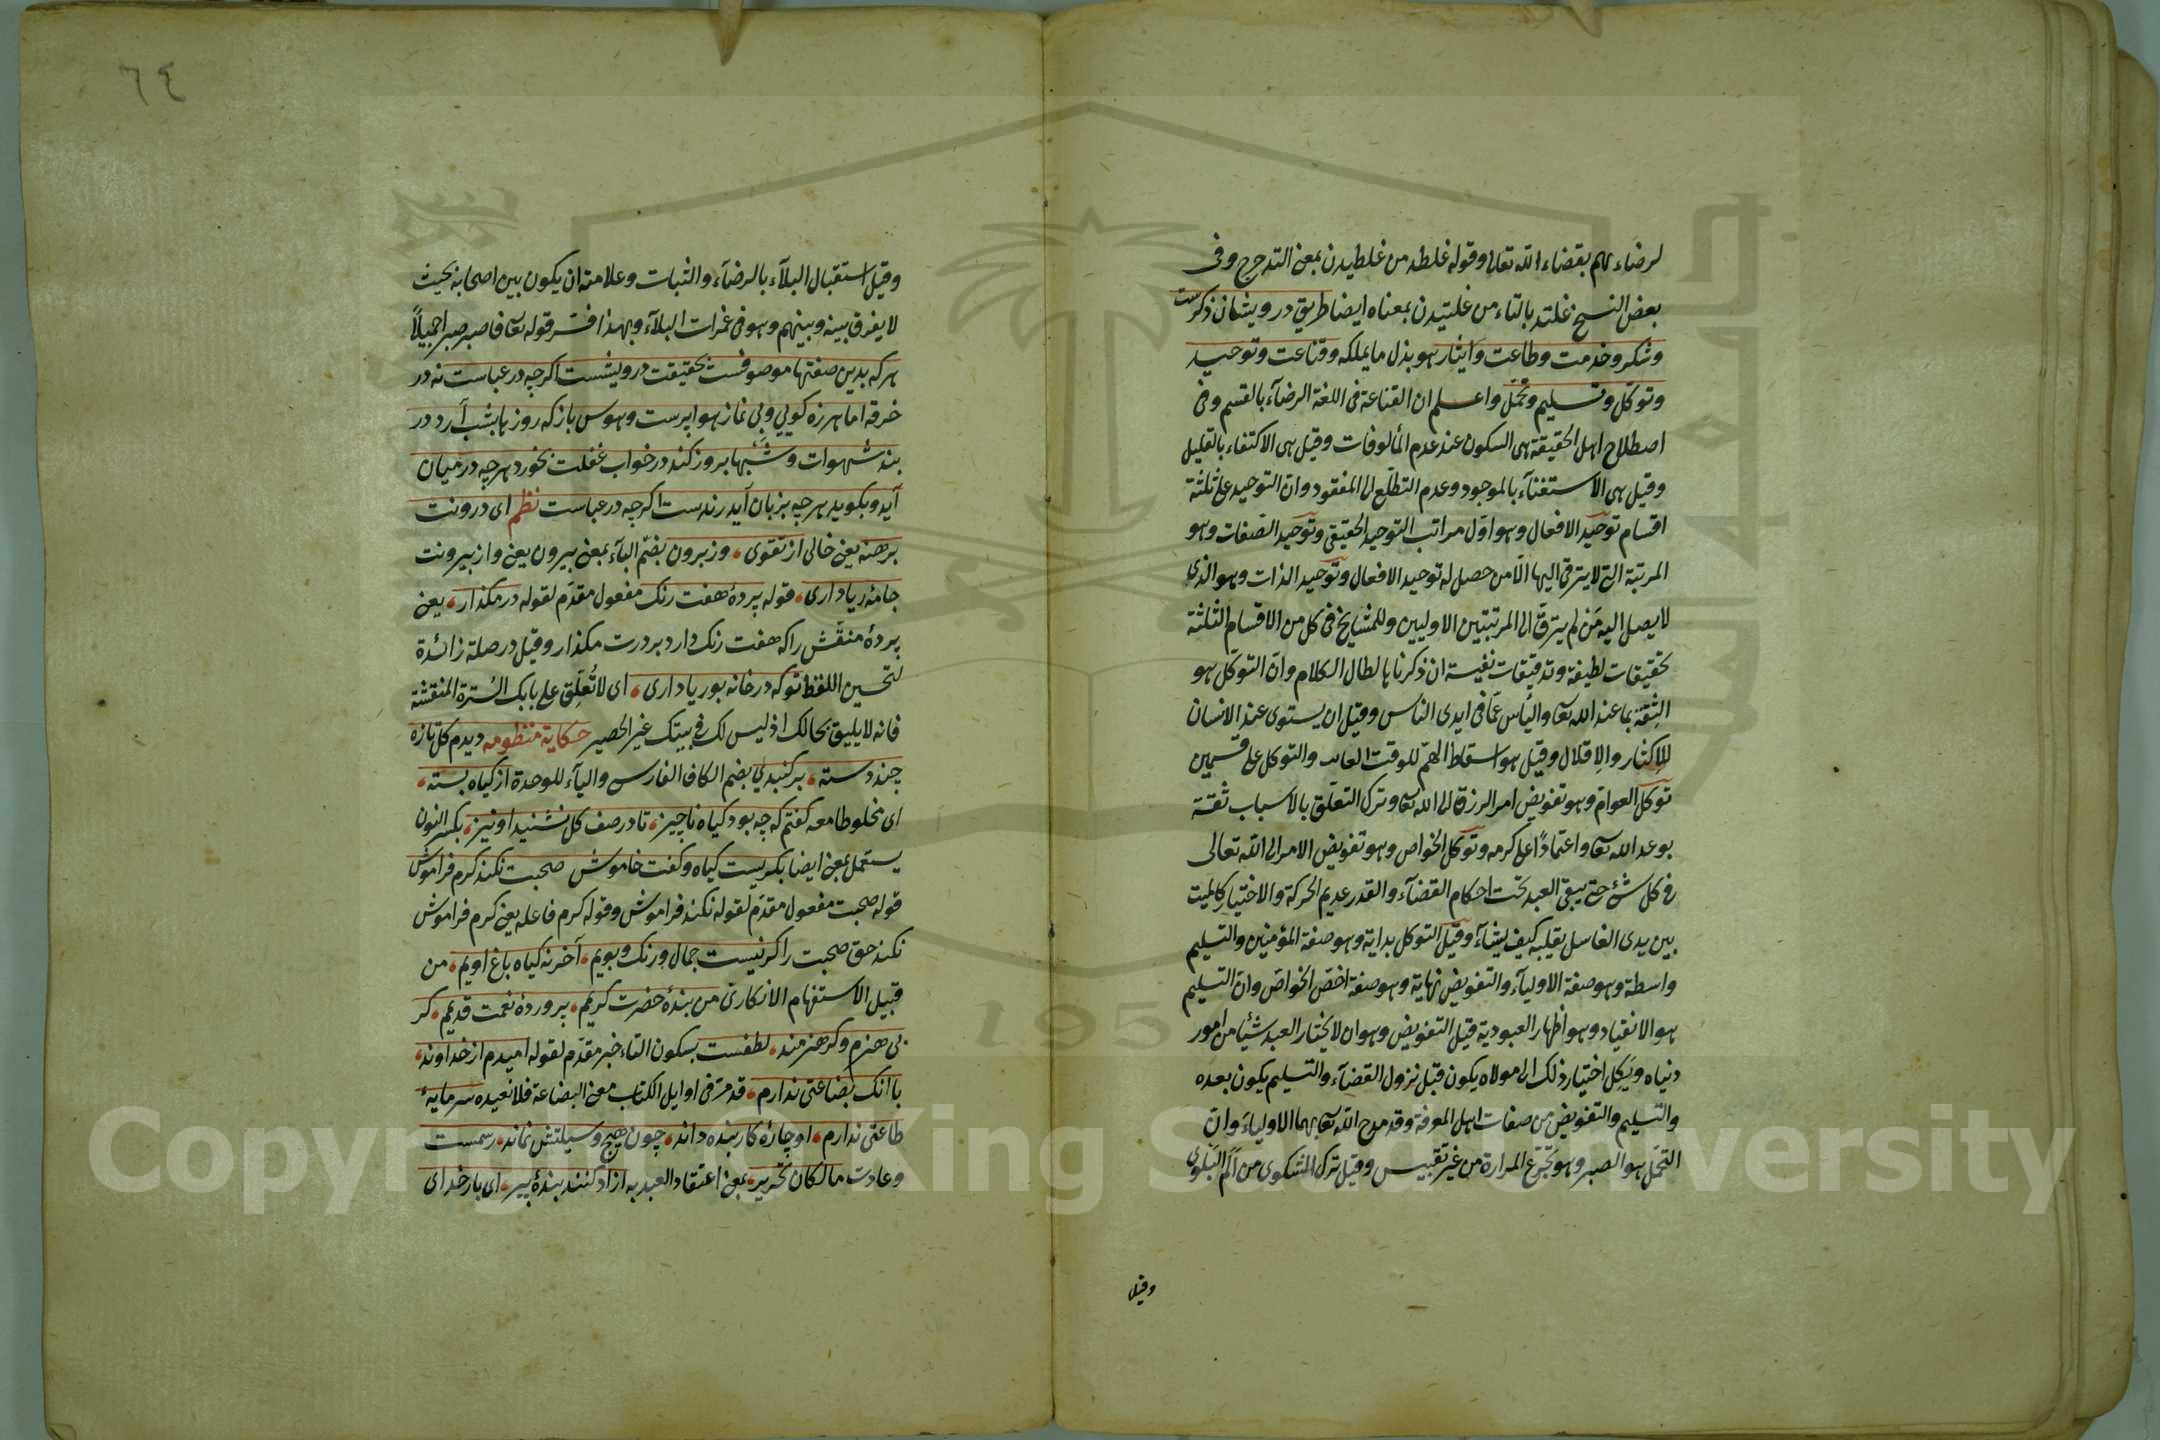 لرضاءهم بقضاء الله تعالى وقوله غلطد من غلطيدن بمعنى التدحرج وفى
بعض النسخ غلتد بالتاء من غلتيدن بمعناه ايضا طريق درويشان ذكرست
وشكر وخدمت وطاعت وايثار هو بذل ما يملكه وقناعت وتوحيد
وتوكل وتسليم وتحمل واعلم ان القناعة فى اللغة الرضاء بالقسم وفى
اصطلاح اهل الحقيقة هى السكون عند عدم المألوفات وقيل هى الاكتفاء بالقليل
وقيل هى الاستغناء بالموجود وعدم التطلع الى المفقود وان التوحيد على ثلثة
اقسام توحيد الافعال وهو اول مراتب التوحيد الحقيقى وتوحيد الصفات وهو
المرتبة التى لا يترقى اليها الا من حصل له توحيد الافعال وتوحيد الذات وهو الذى
لا يصل اليه من لم يترق الى المرتبتين الاوليين وللمشايخ فى كل من الاقسام الثلثة
تحقيقات لطيفة وتدقيقات نفيسة ان ذكرناها لطال الكلام وان التوكل هو
الثقة بما عند الله تعا والياس عما فى ايدى الناس وقيل ان يستوى عند الانسان
الاكثار والاقلال وقيل هو اسقاط الهم للوقت والتوكل على قسمين
توكل العوام وهو تفويض امر الرزق الى الله تعا وترك التعلق بالاسباب ثقة
بوعد الله تعا واعتمادا على كرمه وتوكل الخواص وهو تفويض الامر الى الله تعالى
فى كل شئ حتى يبقى العبد تحت احكام القضاء والقدر عديم الحركة والاختيار كالميت
بين يدى الغاسل يقلبه كيف يشاء وقيل التوكل بداية وهو صفة المؤمنين والتسليم
واسطة وهو صفة الاولياء والتفويض نهاية وهو صفة اخص الخواص وان التسليم
هو الانقياد وهو اظهار العبودية قيل التفويض وهو ان لا يختار العبد شيئا من امور
دنياه ويكل اختيار ذلك الى مولاه يكون قبل نزول القضاء والتسليم يكون بعده
والتسليم والتفويض من صفات اهل المعرفة وقد مدح الله تعا بهما الاولياء وان
التحمل هو الصبر وهو تجرع المرارة من غير تعبيس وقيل ترك الشكوى من الم البلوى
وقيل
٦٤
وقيل استقبال البلاء بالرضاء والثبات وعلامته ان يكون بين اصحابه بحيث
لا يفرق بينه وبينهم وهو فى غمرات البلاء وبهذا فسر قوله تعا فاصبر صبرا جميلا
هر كه بدين صفتها موصوفست بحقيقت درويشست اكرچه در عباست نه در
خرقه اما هرزه كويى وبى نماز هوا پرست وهوس باز كه روزها بشب آرد در
بند شهوات وشبها بروز كند در خواب غفلت بخورد هرچه در ميان
آيد وبكويد هرچه بزبان آيد رندست اكرچه در عباست نظم اى درونت
برهنه يعنى خالى از تقوى وز برون بضم الباء بمعنى بيرون يعنى واز بيرونت
جامۀ ريا دارى قوله پردۀ هفت رنك مفعول مقدم لقوله درمكذار يعنى
پردۀ منقش را كه هفت رنك دارد بر درت مكذار وقيل در صلة زائدة
لتحسين اللفظ تو كه در خانه بوريا دارى اى لا تعلق على بابك السترة المنقشة
فانه لا يليق بحالك اذ ليس لك فى بيتك غير الحصير حكاية منظومه ديدم كل تازه
چند دسته بر كنبدى بضم الكاف الفارسى والياء للوحدة از كياه بسته
اى مخلوطا معه كفتم كه چه بود كياه ناچيز تا در صف كل نشيند او نيز بكسر النون
يستعمل بمعنى ايضا بكريست كياه وكفت خاموش صحبت نكند كرم فراموش
قوله صحبت مفعول مقدم لقوله نكند فراموش وقوله كرم فاعله يعنى كرم فراموش
نكند حق صحبت را كر نيست جمال ورنك وبويم آخر نه كياه باغ اويم من
قبيل الاستفهام الانكارى من بندۀ حضرت كريمم پروردۀ نعمت قديمم كر
بى هنرم وكر هنرمند لطفست بسكون التاء خبر مقدم لقوله اميدم از خداوند
با آنك بضاعتى ندارم قد مر فى اوايل الكتاب معنى البضاعة فلا نعيده سرمايۀ
طاعتى ندارم او چارۀ كار بنده داند چون هيچ وسيلتش نماند رسمست
وعادت مالكان تحرير بمعنى اعتقاد العبد به ازاد كنند بندۀ پير اى بار خداى